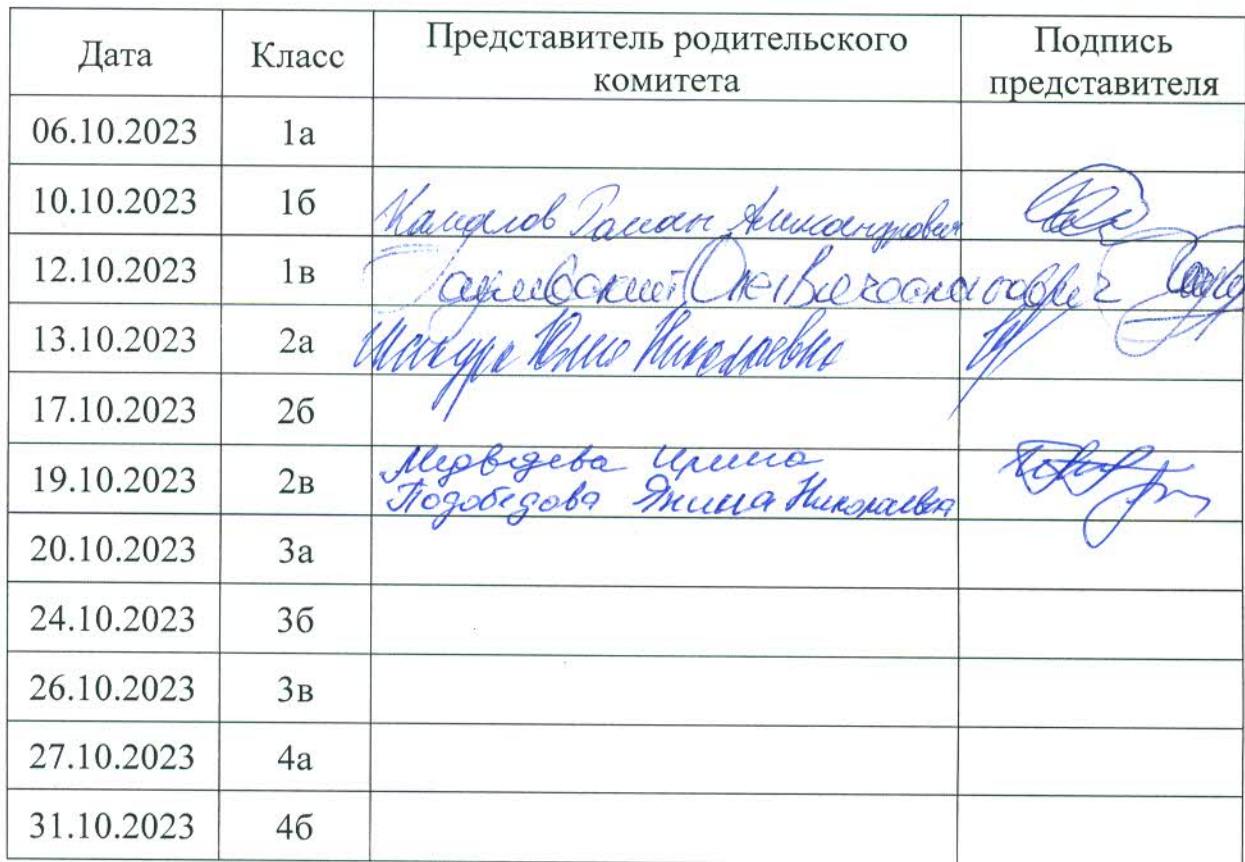 Дата Класс Представитель родительского комитета Подпись представителя
06.10.2023 1а
10.10.2023 1б Роман Александрович
12.10.2023 1в Вячеславович
13.10.2023 2а Юлия Николаевна
17.10.2023 2б
19.10.2023 2в Медведева Ирина
Подобедова Янина Николаевна
20.10.2023 3а
24.10.2023 3б
26.10.2023 3в
27.10.2023 4а
31.10.2023 4б